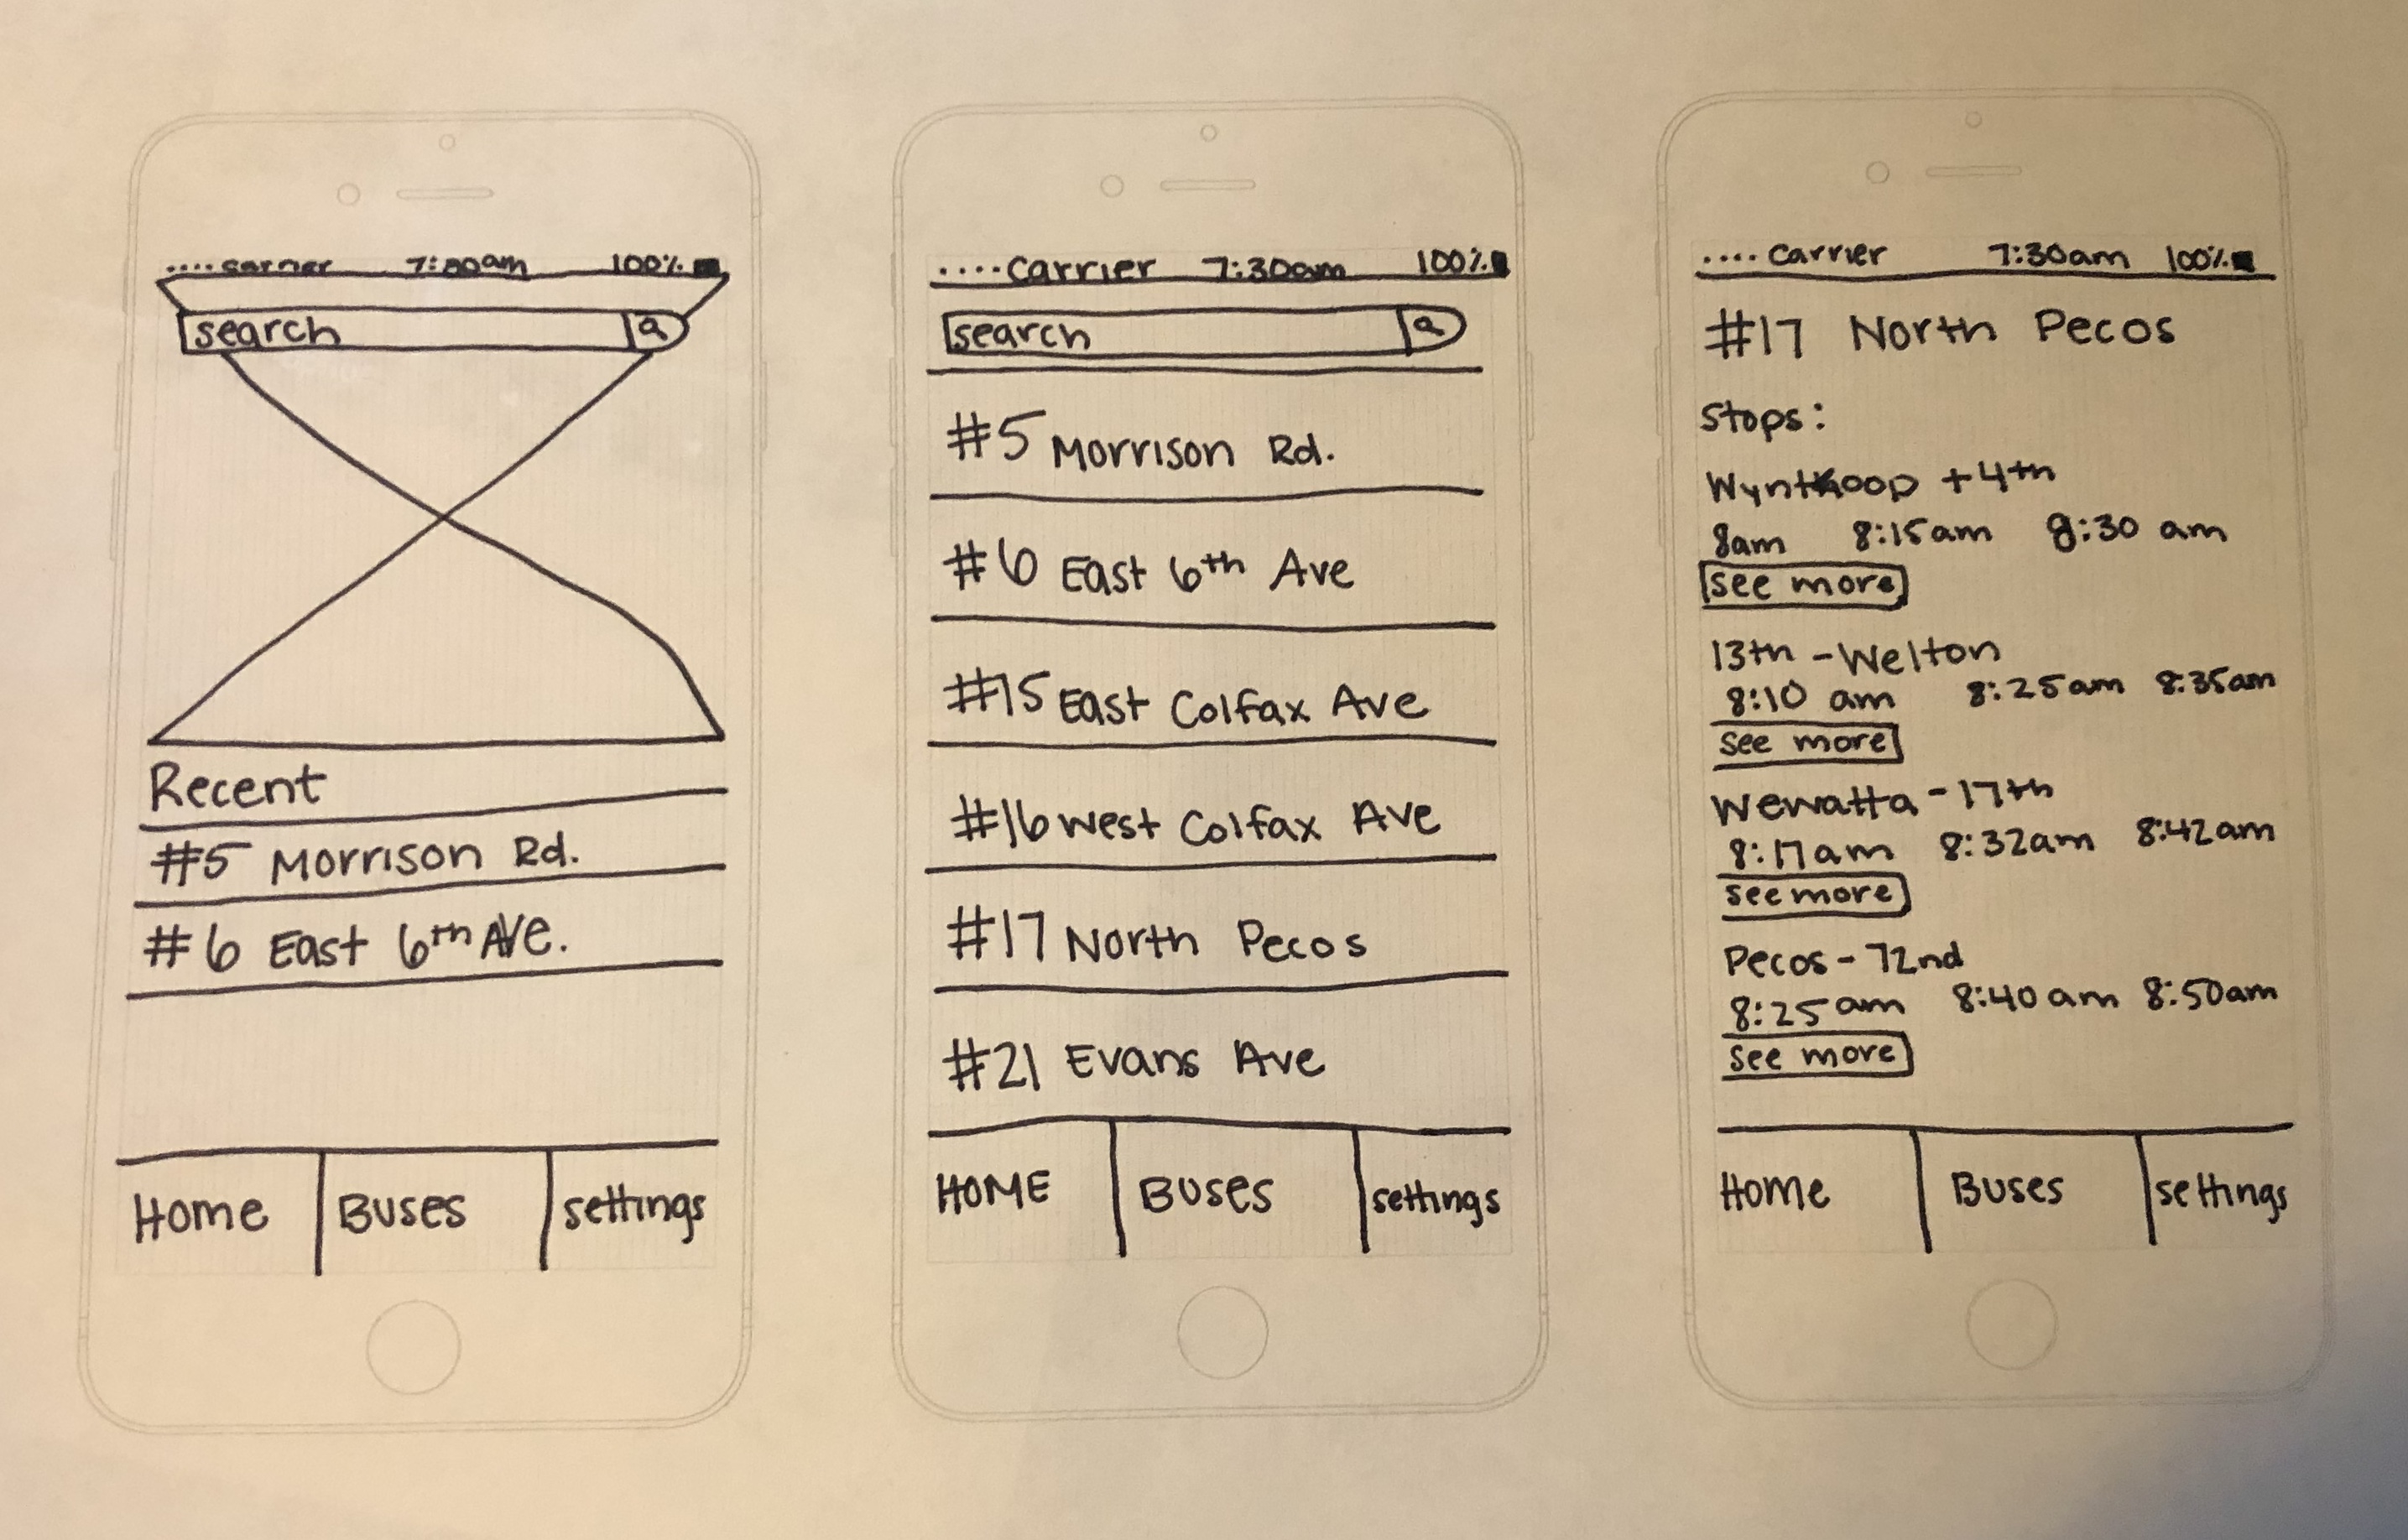 .... carrier 7:30am 100%
search
Recent
#5 Morrison Rd.
#6 East 6th AVe.
Home Buses settings
.... carrier 7:30am 100%
search
#5 Morrison Rd.
#6 East 6th Ave
#15 East Colfax Ave
#16 West Colfax Ave
#17 North Pecos
#21 Evans Ave
HOME Buses settings
.... carrier 7:30am 100%
#17 North Pecos
Stops:
+4th
8am 8:15am 8:30 am
see more
13th - Welton
8:10 am 8:25am 8:35am
see more
Wewatta - 17th
8:17am 8:32am 8:42am
see more
Pecos - 72nd
8:25am 8:40am 8:50am
see more
Home Buses settings